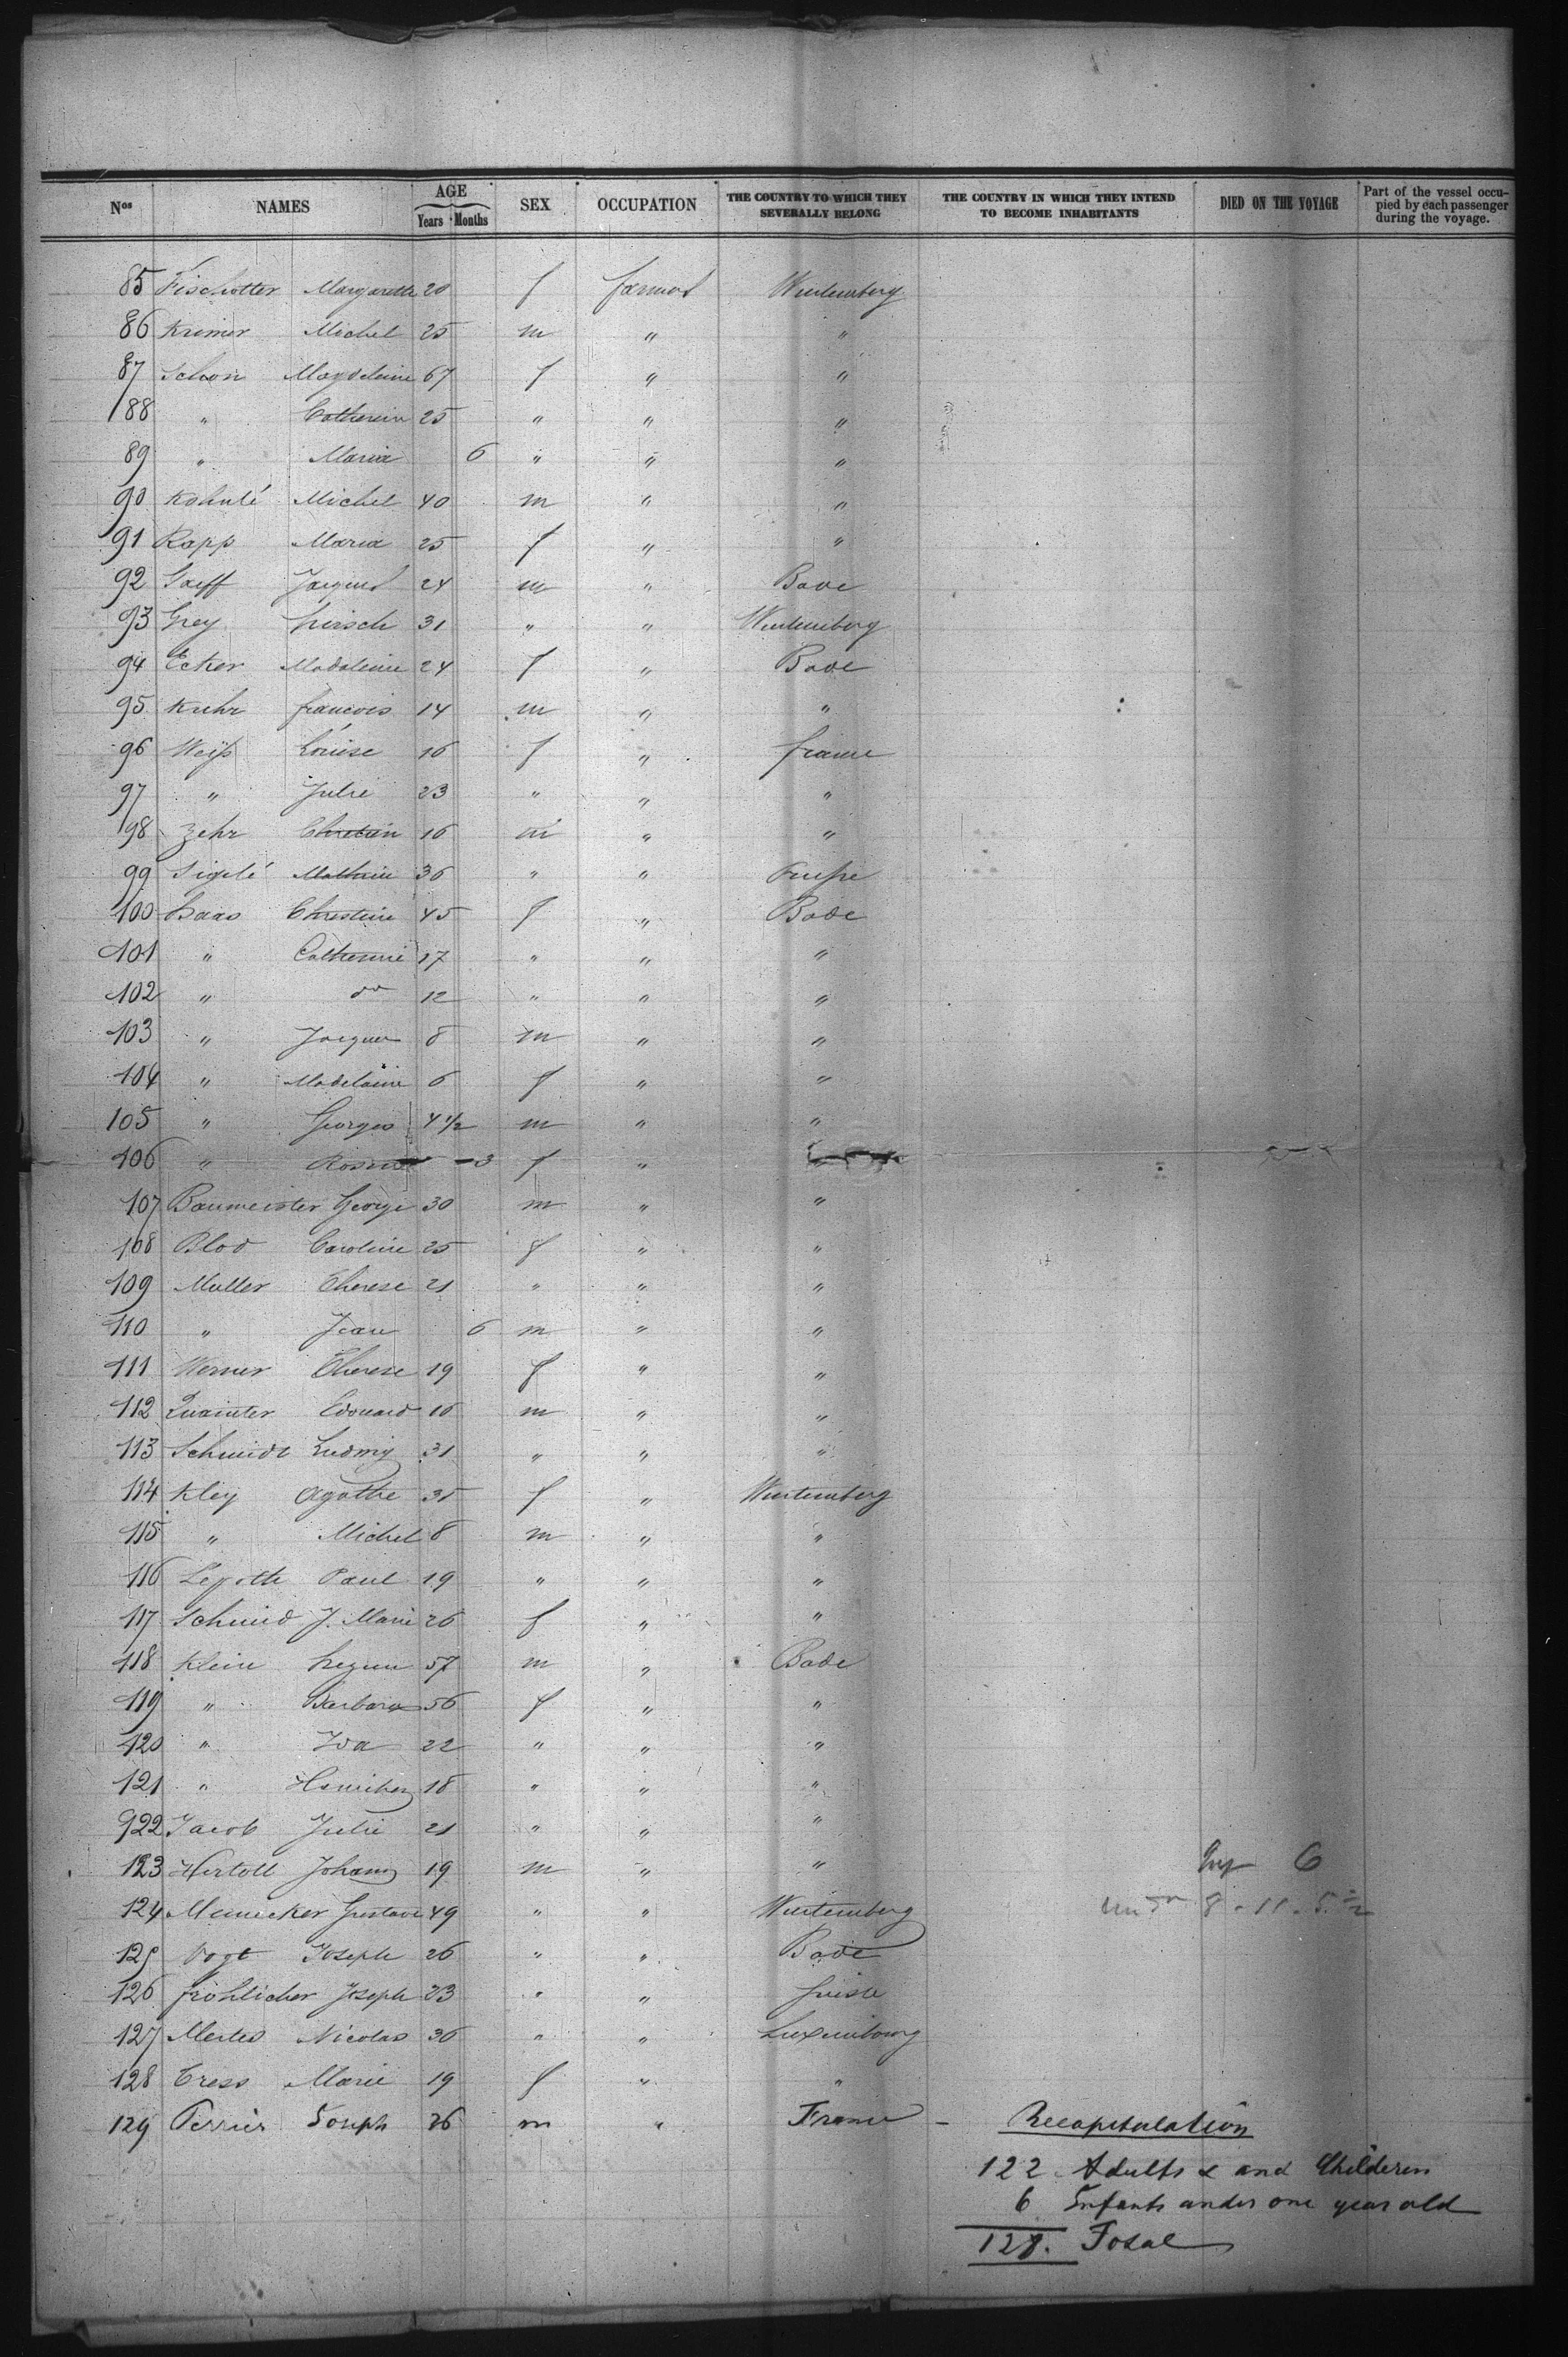 Nos NAMES AGE Years Months SEX OCCUPATION THE COUNTRY TO WHICH THEY SEVERALLY BELONG THE COUNTRY IN WHICH THEY INTEND TO BECOME INHABITANTS DIED ON THE VOYAGE Part of the vessel occupied by each passenger during the voyage.
85 Fischotter Margarette 20 f farmers Wurtemberg
86 Kremer Michel 25 m " "
87 Schon Magdeleine 67 f " "
88 " Catherein 25 " " "
89 " Maria 6 " " "
90 Kohnlé Michel 40 m " "
91 Rapp Maria 25 f " "
92 Jacques 24 m " Bade
93 Grey hirsch 31 " " Wurtemberg
94 Ecker Madaleine 24 f " Bade
95 Kuhr francois 14 m " "
96 Weiß Louise 16 f " france
97 " Julie 23 " " "
98 Zehr Chretien 16 m " "
99 Siglé 36 " "
100 haas Chrestine 45 f " Bade
101 " Catherine 17 " " "
102 " do 12 " " "
103 " Jacques 8 m " "
104 " Madelaine 6 f " "
105 " Georges 4 1/2 m " "
106 " Rosine 3 f "
107 Baumeister George 30 m " "
108 Blod Caroline 25 f " "
109 Muller Therese 21 " " "
110 " Jean 6 m " "
111 Werner Therese 19 f " "
112 Edouard 16 m " "
113 Schmidt Ludwig 31 " " "
114 Kley Agathe 35 f " Wurtemberg
115 " Michel 8 m " "
116 Paul 19 " " "
117 Schmid J. Marie 26 f " "
118 Klein 57 m " Bade
119 " Barbara 56 f " "
120 " Ida 22 " " "
121 " 18 " " "
922 Jacob Julie 21 " " "
123 Hertoll Johann 19 m " "
6
124 Gustave 49 " " Wurtemberg
8 - 11 - 5
125 Vogt Joseph 26 " " Bade
126 frohlicher Joseph 23 " "
127 Mertes Nicolas 36 " " Luxembourg
128 Cress Marie 19 f " "
129 Perrier Joseph 26 m " France -
Recapitulation
122 Adults & and Childeren
6 Infants under one year old
128. Total